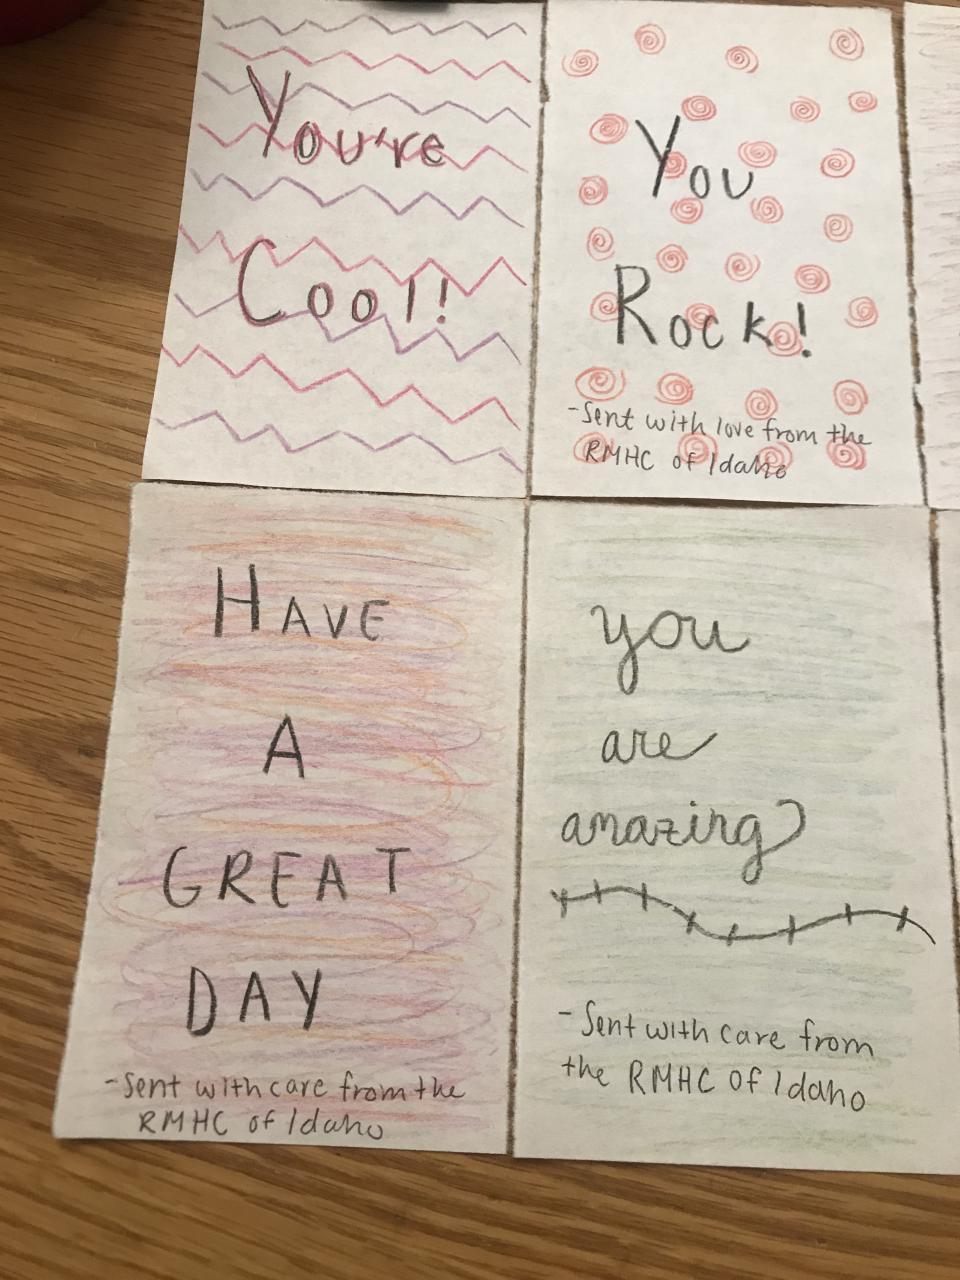 You're
Cool!
You
Rock!
-Sent with love from the
RMHC of Idaho
HAVE
A
GREAT
DAY
-Sent with care from the
RMHC of Idaho
you
are
amazing
-Sent with care from
the RMHC of Idaho